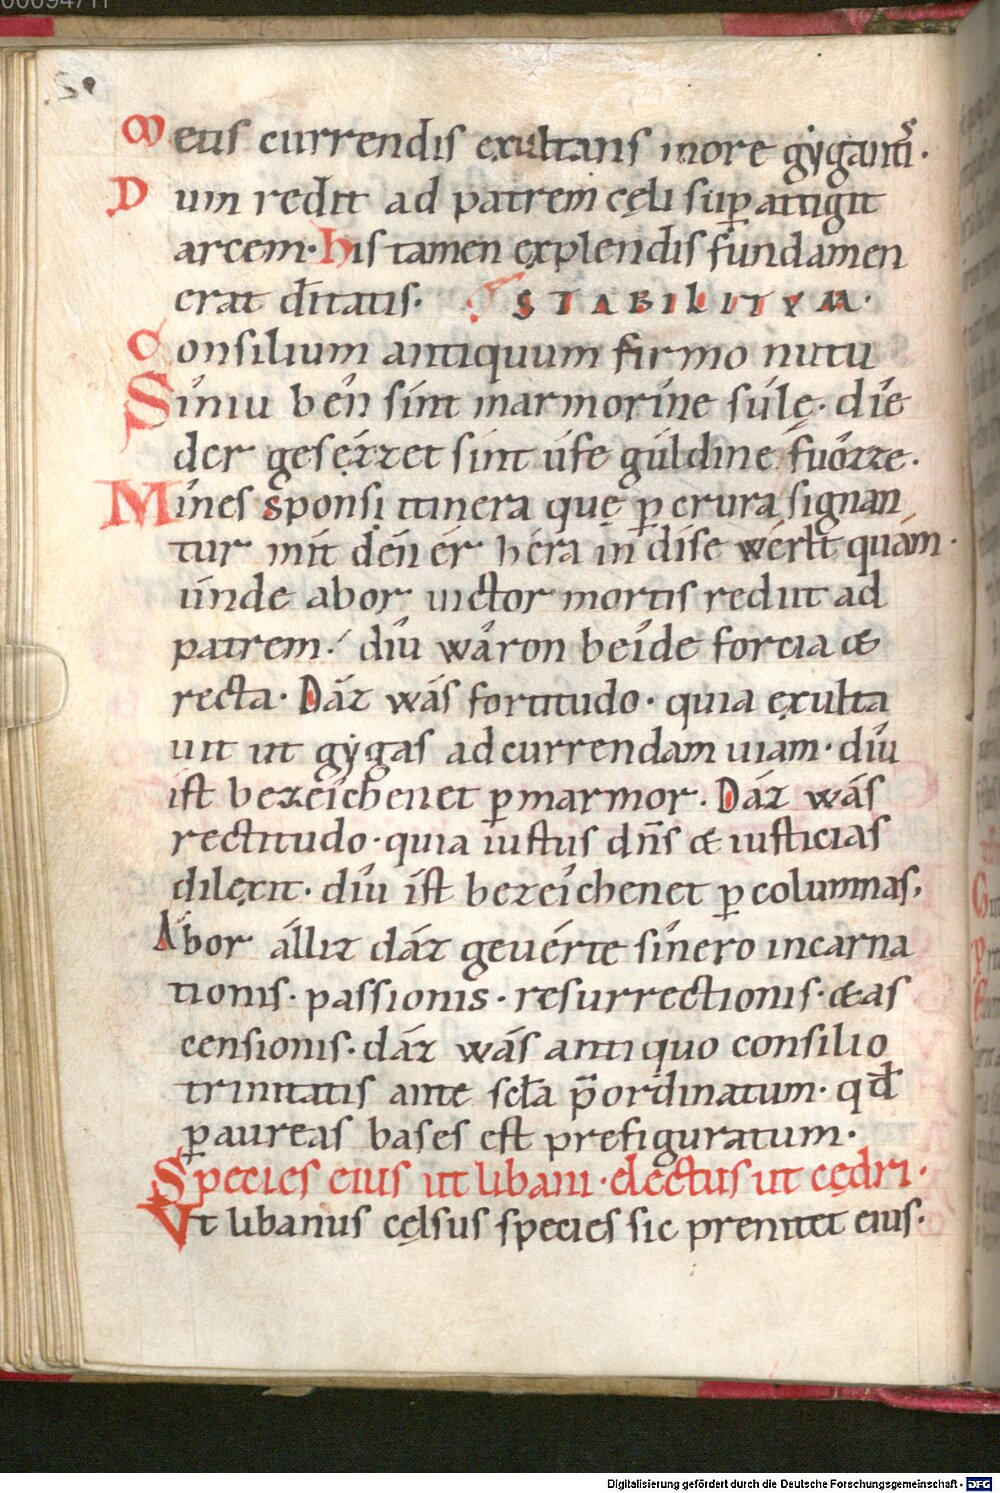 Metis currendis exultans more gygantũ.
Dum redit ad patrem cęli sup̱ attigit
arcem. His tamen explendis fundamen
erat ditatis. STABILITVM.
Consilium antiquum firmo nutu
Sîniu beín sint marmorîne sûle. díe
der gesézzet sint ûfe gúldine fuózze.
Mînes sponsi itinera que p̱ crura signan
tur mit dén ér héra in dise wérlt quám.
únde abor uictor mortis rediit ad
patrem. díu wâron beîde forcia &
recta. Dáz wás fortitudo. quia exulta
uit ut gygas ad currendam uiam. díu
ist bezeíchenet p̱ marmor. Dáz wás
rectitudo. quia iustus dn̄s & iusticias
dilexit. díu ist bezeíchenet p̱ columnas.
Ábor állíz dáz geuérte sînero incarna
tionis. passionis. resurrectionis. & as
censionis. dáz wás antiquo consilio
trinitatis ante scła p̄ordinatum. qđ
p̱ aureas bases est prefiguratum.
Species eius ut libani. electus ut cędri.
Vt libanus cęlsus species sic prenitet eius.
Digitalisierung gefördert durch die Deutsche Forschungsgemeinschaft - DFG